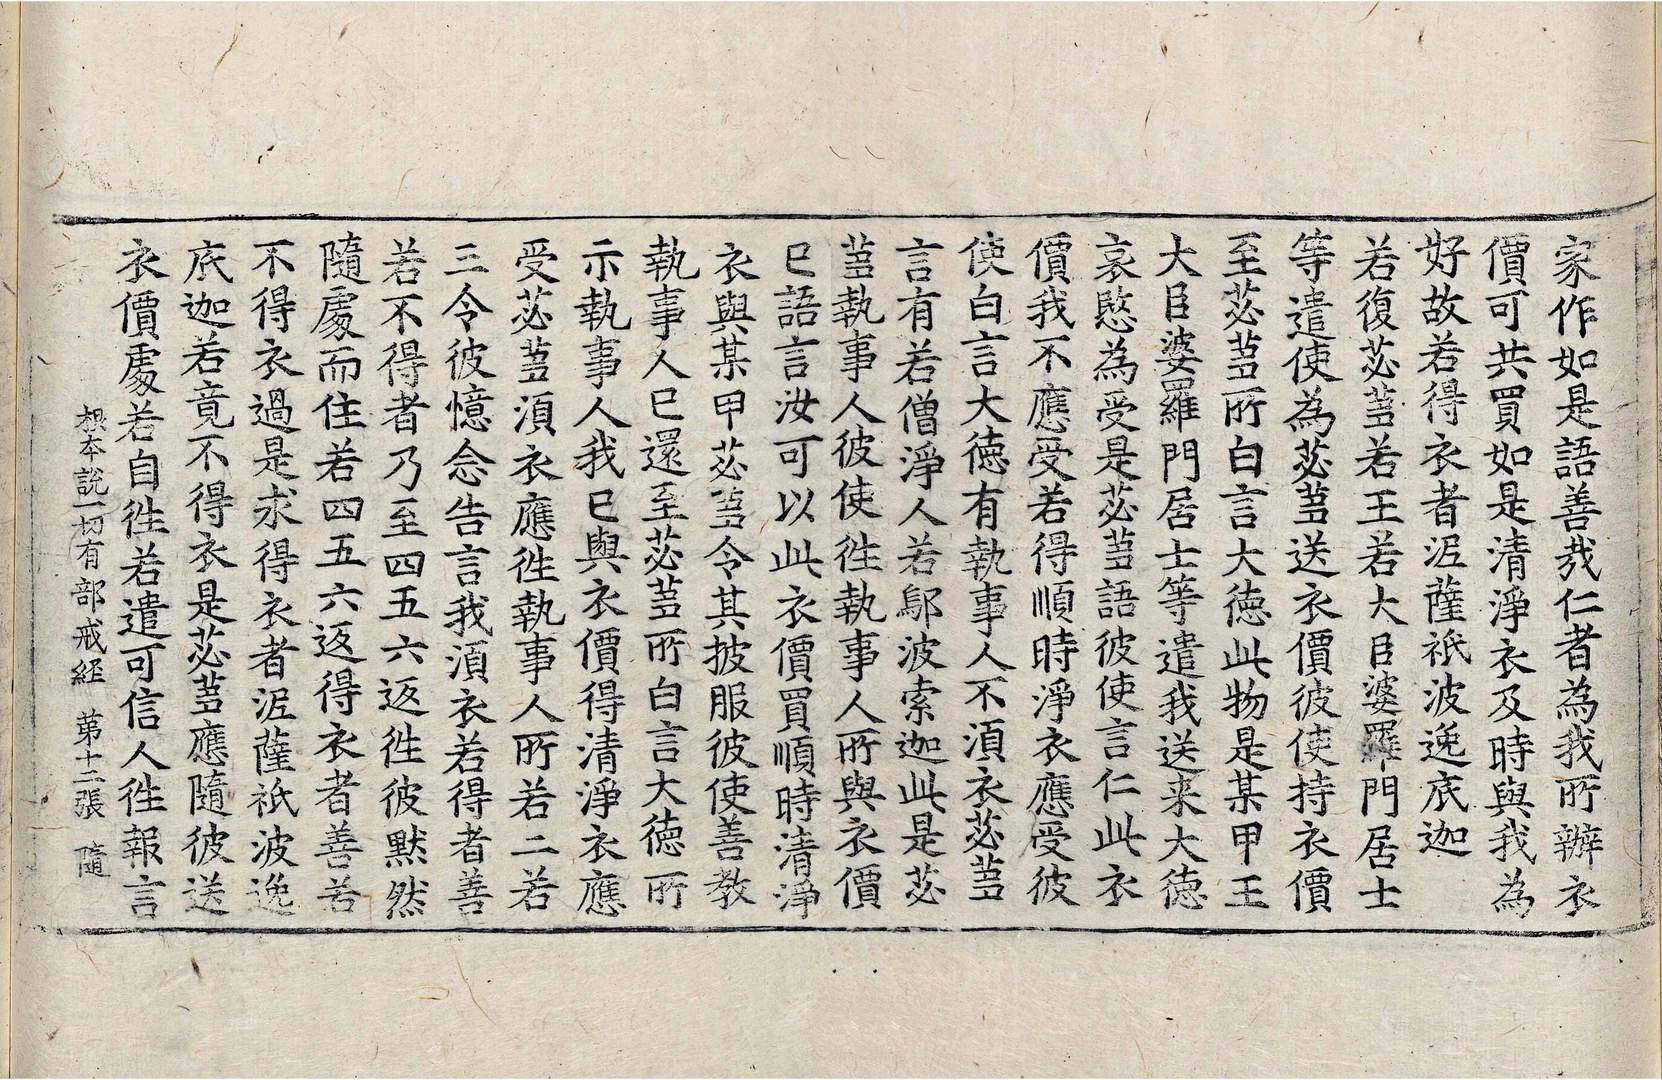 家作如是語善㢤仁者為我所辦衣
價可共買如是清淨衣及時與我為
好故若得衣者泥薩祇波逸底迦
若復苾蒭若王若大臣婆羅門居士
等遣使為苾蒭送衣價彼使持衣價
至苾蒭所白言大徳此物是某甲王
大臣婆羅門居士等遣我送来大徳
哀愍為受是苾蒭語彼使言仁此衣
價我不應受若得順時淨衣應受彼
使白言大徳有執事人不湏衣苾蒭
言有若僧淨人若鄔波索迦此是苾
蒭執事人彼使徃執事人所與衣價
已語言汝可以此衣價買順時清淨
衣與某甲苾蒭令其披服彼使善教
執事人已還至苾蒭所白言大徳所
示執事人我已與衣價得清淨衣應
受苾蒭湏衣應徃執事人所若二若
三令彼憶念告言我湏衣若得者善
若不得者乃至四五六返徃彼默然
隨處而住若四五六返得衣者善若
不得衣過是求得衣者泥薩祇波逸
底迦若竟不得衣是苾蒭應隨彼送
衣價處若自徃若遣可信人徃報言
根本說一切有部戒経 第十二張 隨